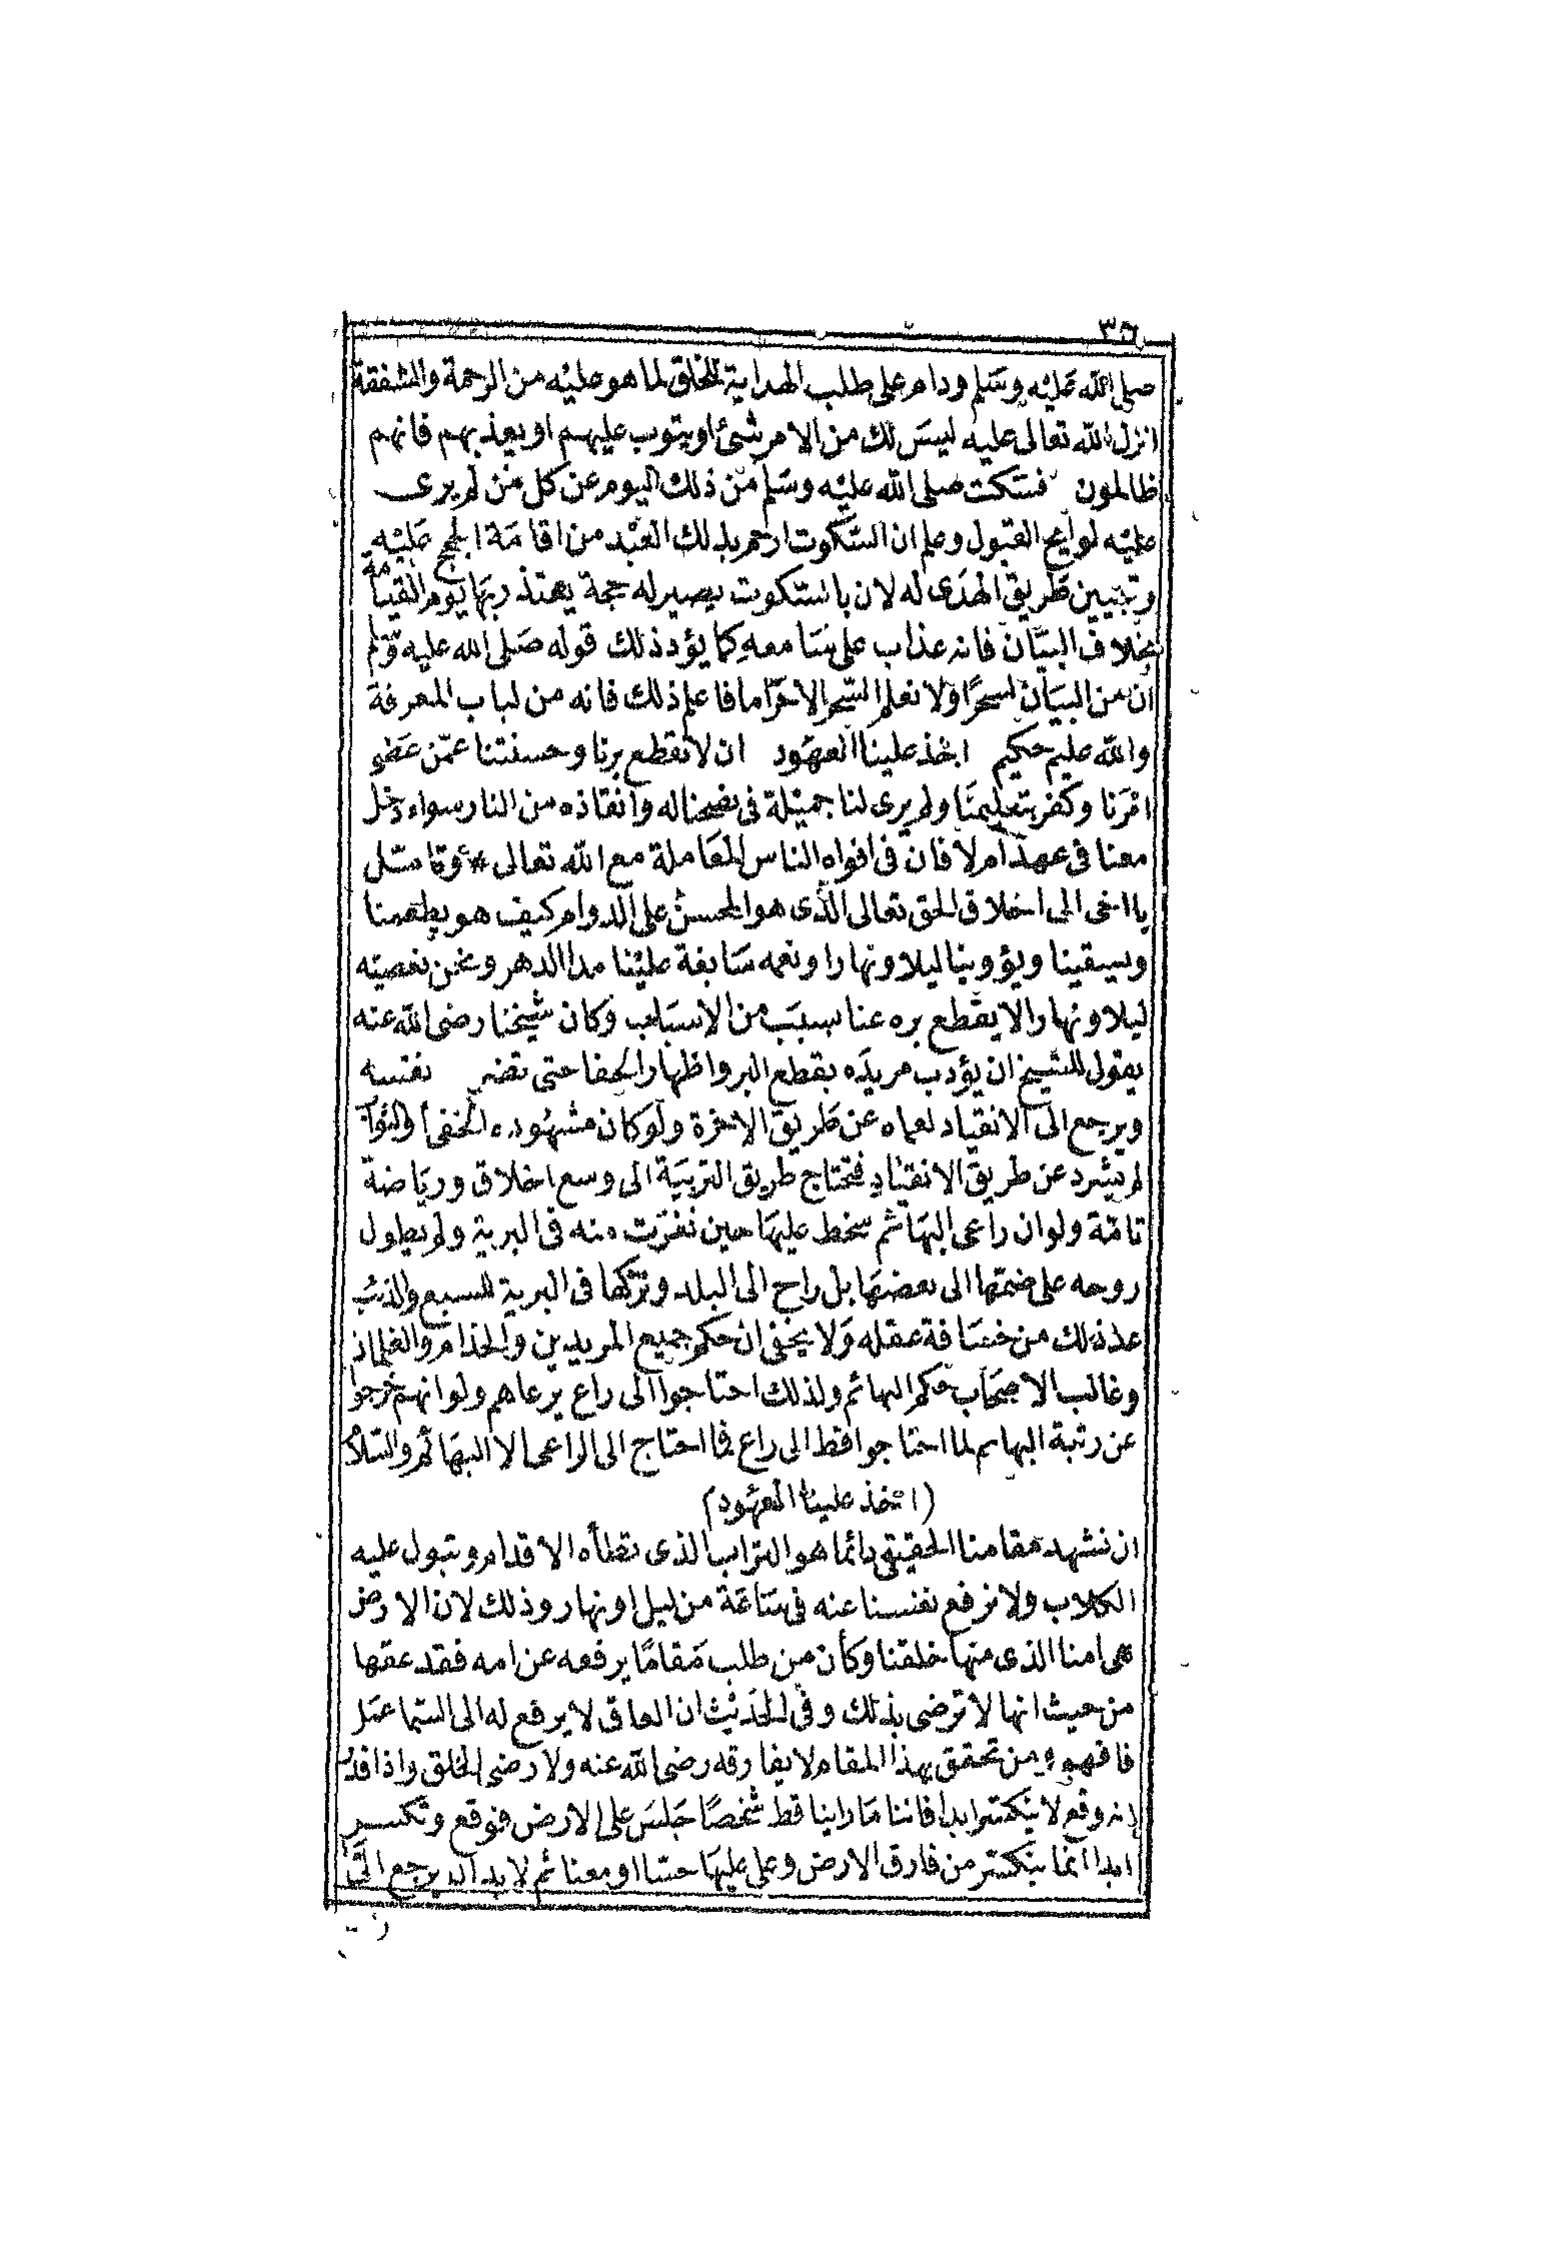 ٣٦
صلى الله عليه وسلم ودام على طلب الهداية للخلق لما هو عليه من الرحمة والشفقة
انزل الله تعالى عليه ليس لك من الامر شئ او يتوب عليهم او يعذبهم فانهم
ظالمون فسكت صلى الله عليه وسلم من ذلك اليوم عن كل من لم يرى
عليه لوايح القبول وعلم ان السكوت ارحم بذلك العبد من اقامة الحجج عليه
وتبيين طريق الهدى له لان بالسكوت يصير له حجة يعتذر بها يوم القيامة
بخلاف البيان فانه عذاب على سامعه كما يؤد ذلك قوله صلى الله عليه وسلم
ان من البيان لسحرا ولا نعلم السحر الا حراما فاعلم ذلك فانه من لباب المعرفة
والله عليم حكيم اتخذ علينا العهود ان لا نقطع برنا وحسنتنا عمن عصى
امرنا وكفر بتعليمنا ولم يرى لنا جميلة في نصحنا له وانقاذه من النار سواء دخل
معنا في عهد ام لا فان في افواه الناس المعاملة مع الله تعالى * وتامل
يا اخى الى اخلاق الحق تعالى الذى هو المحسن على الدوام كيف هو يطعمنا
ويسقينا ويؤوينا ليلا ونهارا ونعمه سابغة علينا مدا الدهر ونحن نعصيته
ليلا ونهارا لا يقطع بره عنا بسبب من الاسباب وكان شيخنا رضى الله عنه
يقول للشيخ ان يؤدب مريده بقطع البر واظهار الجفا حتى تضر نفسه
ويرجع الى الانقياد لعماه عن طريق الاخرة ولو كان مشهوده الخفى
لم يشرد عن طريق الانقياد فتحتاج طريق التربية الى وسع اخلاق ورياضة
تامة ولو ان راعى البهائم سخط عليها حين نفرت منه في البرية ولم يطول
روحه على ضمتها الى بعضها بل راح الى البلد وتركها في البرية للسبع والذئب
عد ذلك من خسافة عقله ولا يخفى ان حكم جميع المريدين والخدام والغلمان
وغالب الاصحاب حكم البهائم ولذلك احتاجوا الى راع يرعاهم ولو انهم خرجوا
عن رتبة البهايم لما احتاجوا قط الى راع فما احتاج الى الراعى الا البهائم والسلام
(اتخذ علينا العهود)
ان نشهد مقامنا الحقيقي دائما هو التراب الذى تطأه الاقدام وتبول عليه
الكلاب ولا نرفع نفسنا عنه في ساعة من ليل او نهار وذلك لان الارض
هى امنا الذى منها خلقنا وكان من طلب مقاما يرفعه عن امه فقد عقها
من حيث انها لا ترضى بذلك وفى الحديث ان العاق لا يرفع له الى السما عمل
فافهم ومن تحقق بهذا المقام لا يفارقه رضى الله عنه ولا رضى الخلق واذا قدر
انه وقع لا ينكسر ابدا فاننا ما راينا قط شخصا جلس على الارض فوقع وتكسر
ابدا انما ينكسر من فارق الارض وعلى عليها حسا او معنا ثم لا بد ان يرجع